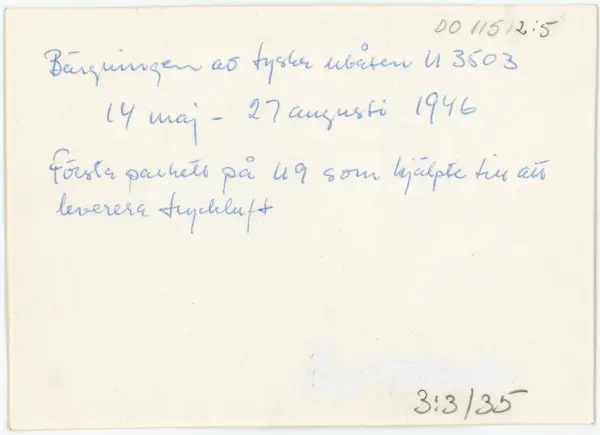 DO 115 12:5
Bärgningen av tyska ubåten U 3503
14 maj - 27 augusti 1946
Första parkett på U9 som hjälpte till att
leverera tryckluft
3:3/35